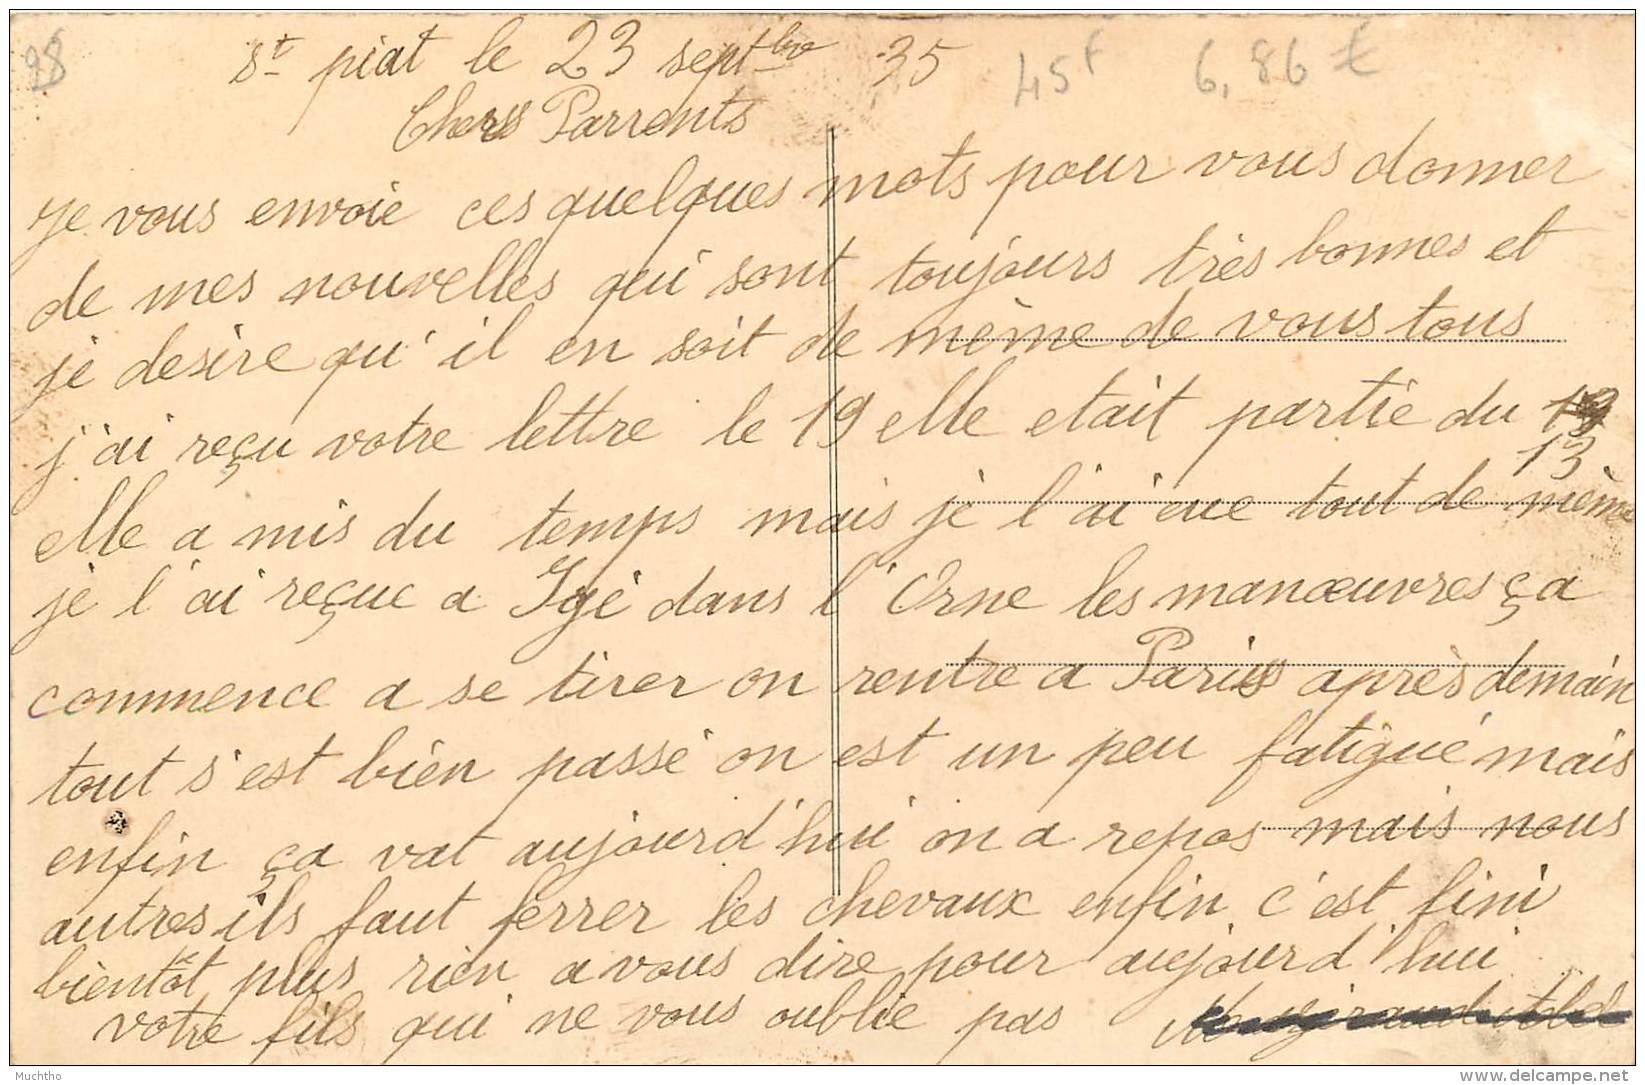 98
St piat le 23 septbre 35
45f 6,86 €
Chers Parrents
Je vous envoie ces quelques mots pour vous donner
de mes nouvelles qui sont toujours très bonnes et
je desire qu'il en soit de même de vous tous
j'ai reçu votre lettre le 19 elle etait partie du
13
elle a mis du temps mais je l'ai eue tout de même
je l'ai reçue a Igé dans l'Orne les manœuvres ça
commence a se tirer on rentre a Paris après demain
tout s'est bien passé on est un peu fatigué mais
enfin ça vat aujourd'hui on a repos mais nous
autres ils faut ferrer les chevaux enfin c'est fini
bientôt plus rien a vous dire pour aujourd'hui
votre fils qui ne vous oublie pas
Muchtho
www.delcampe.net